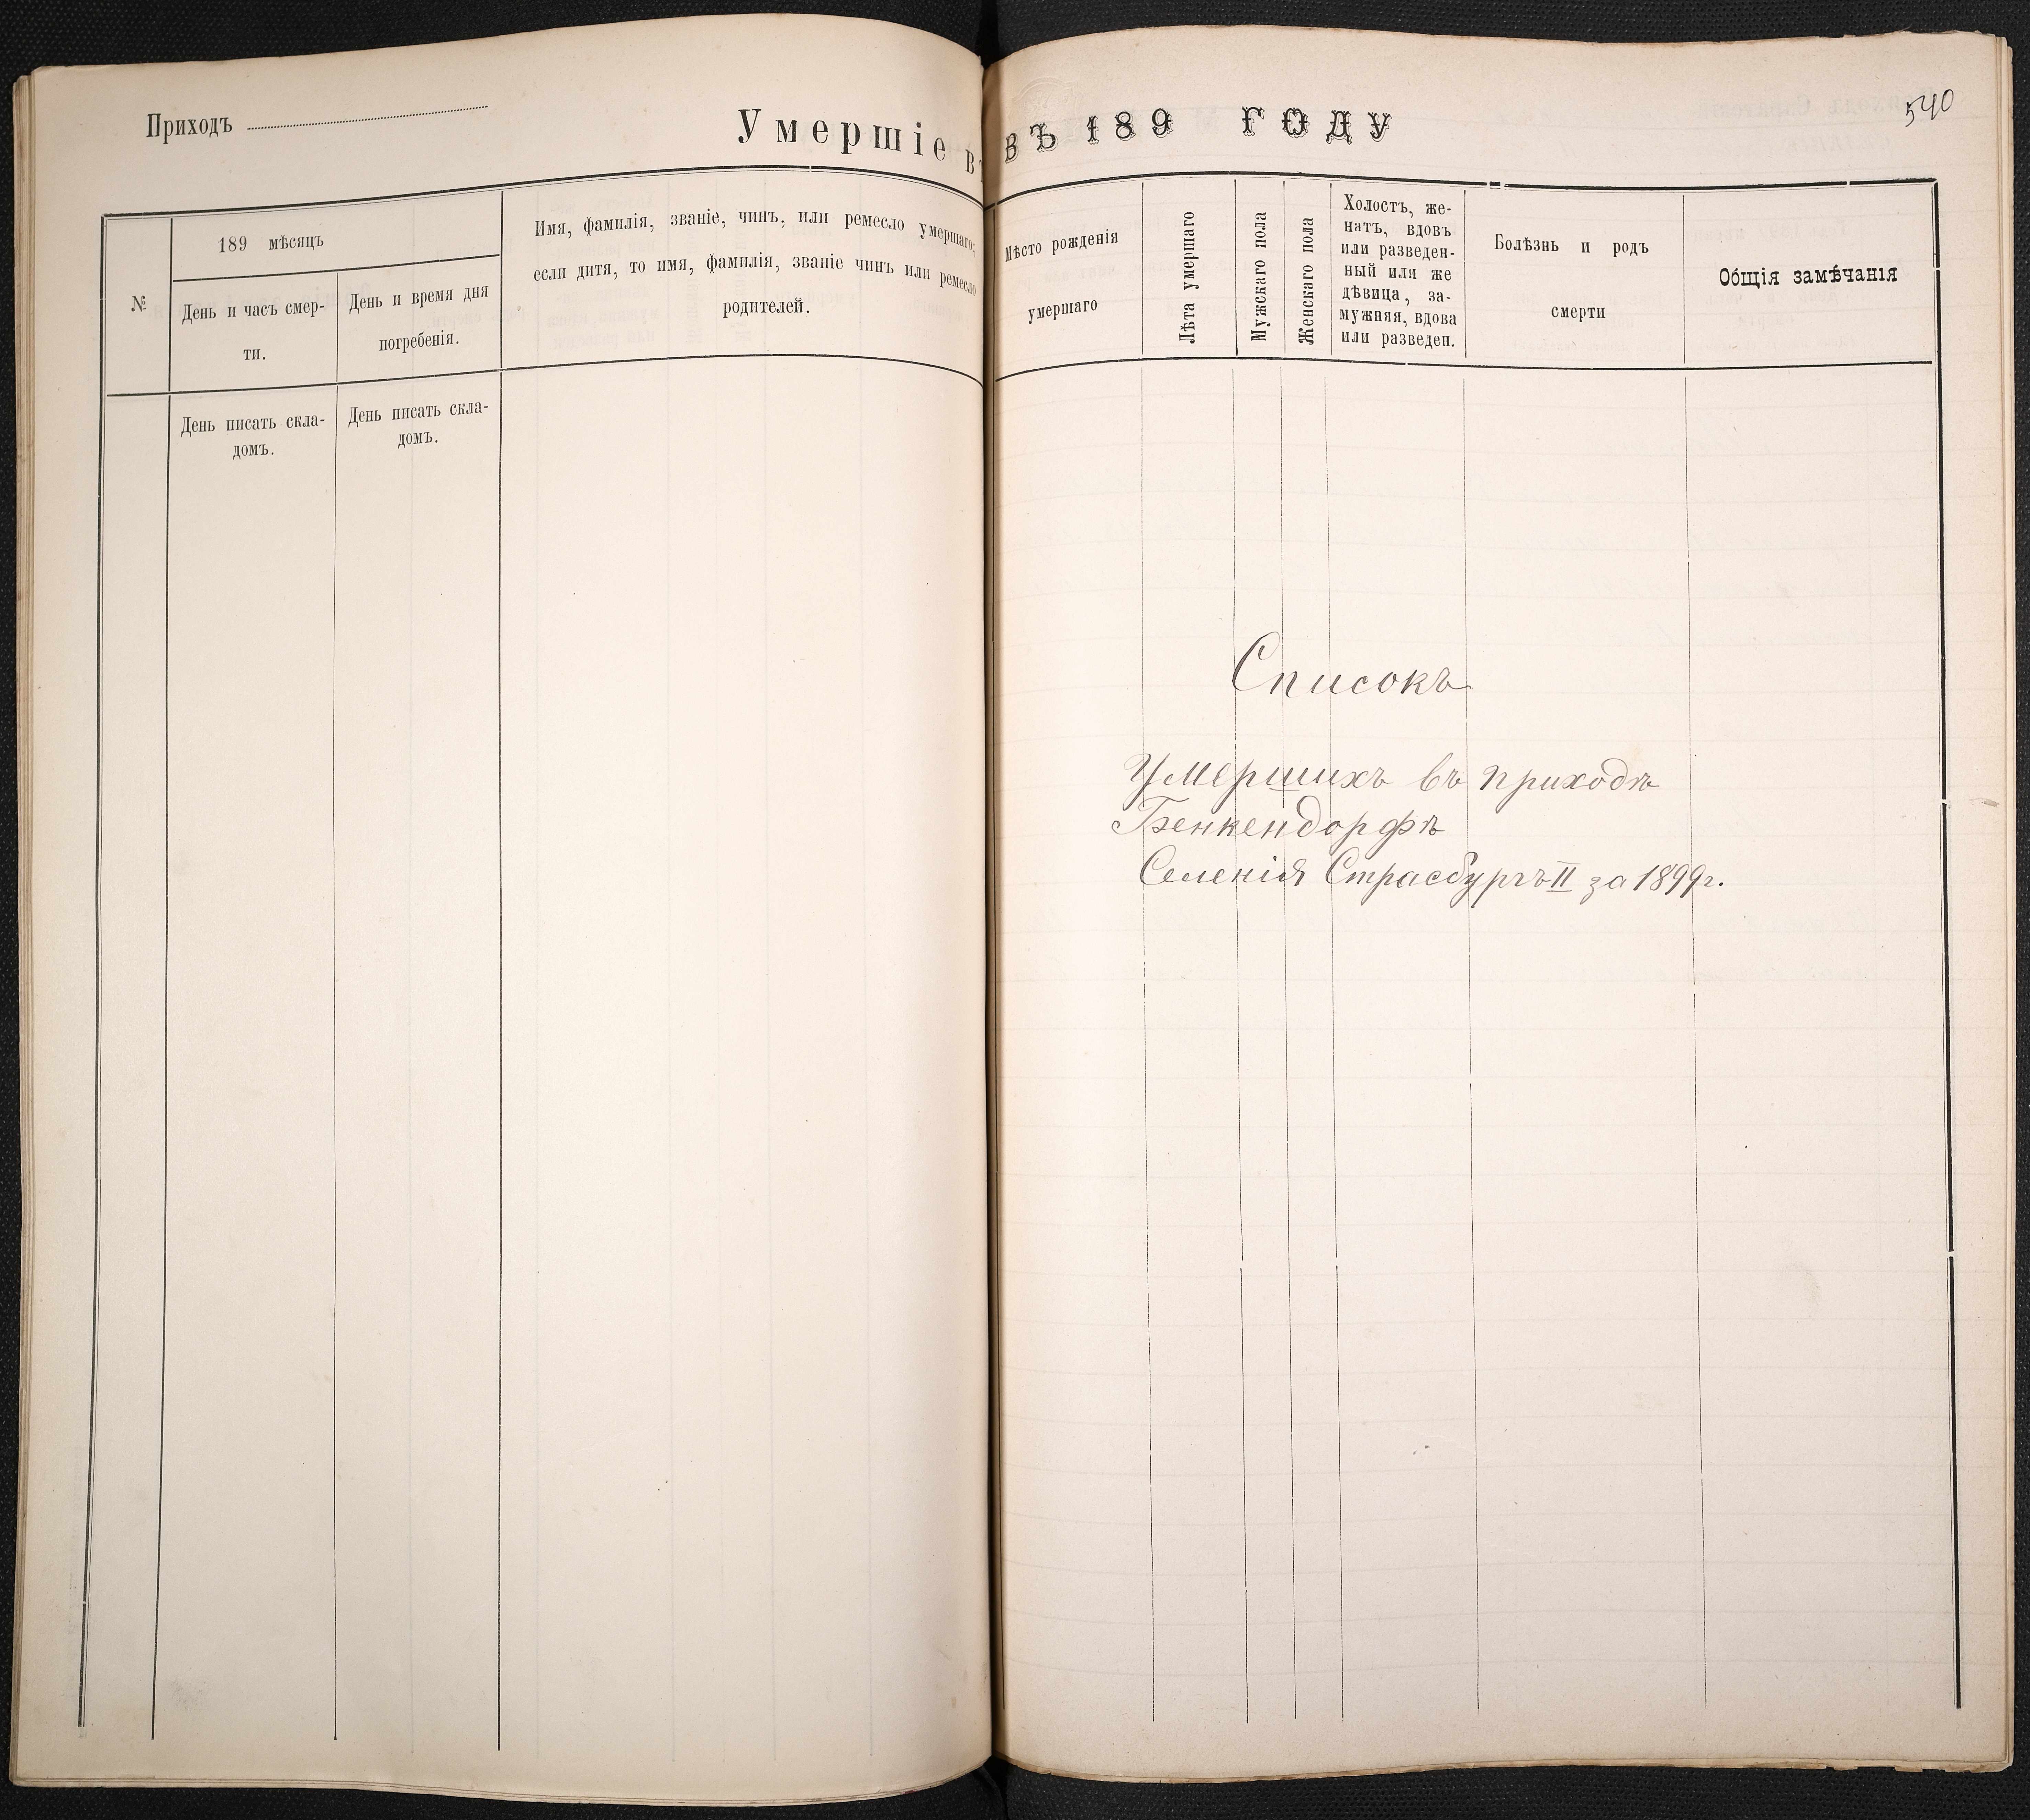 Приходъ
Умершіе въ
№
189 мѣсяцъ
День и часъ смер-
ти.
День и время дня
погребенія.
Имя, фамилія, званіе, чинъ, или ремесло умершаго;
если дитя, то имя, фамилія, званіе чинъ или ремесло
родителей.
День писать скла-
домъ.
День писать скла-
домъ.
ВЪ 189 ГОДУ
540
Мѣсто рожденія
умершаго
Лѣта умершаго
Мужскаго пола
Женскаго пола
Холостъ, же-
натъ, вдовъ
или разведен-
ный или же
дѣвица, за-
мужняя, вдова
или разведен.
Болѣзнь и родъ
смерти
Общія замѣчанія
Списокъ
Умершихъ въ приходѣ
Бенкендорфѣ
Селенія Страсбургъ II за 1899г.